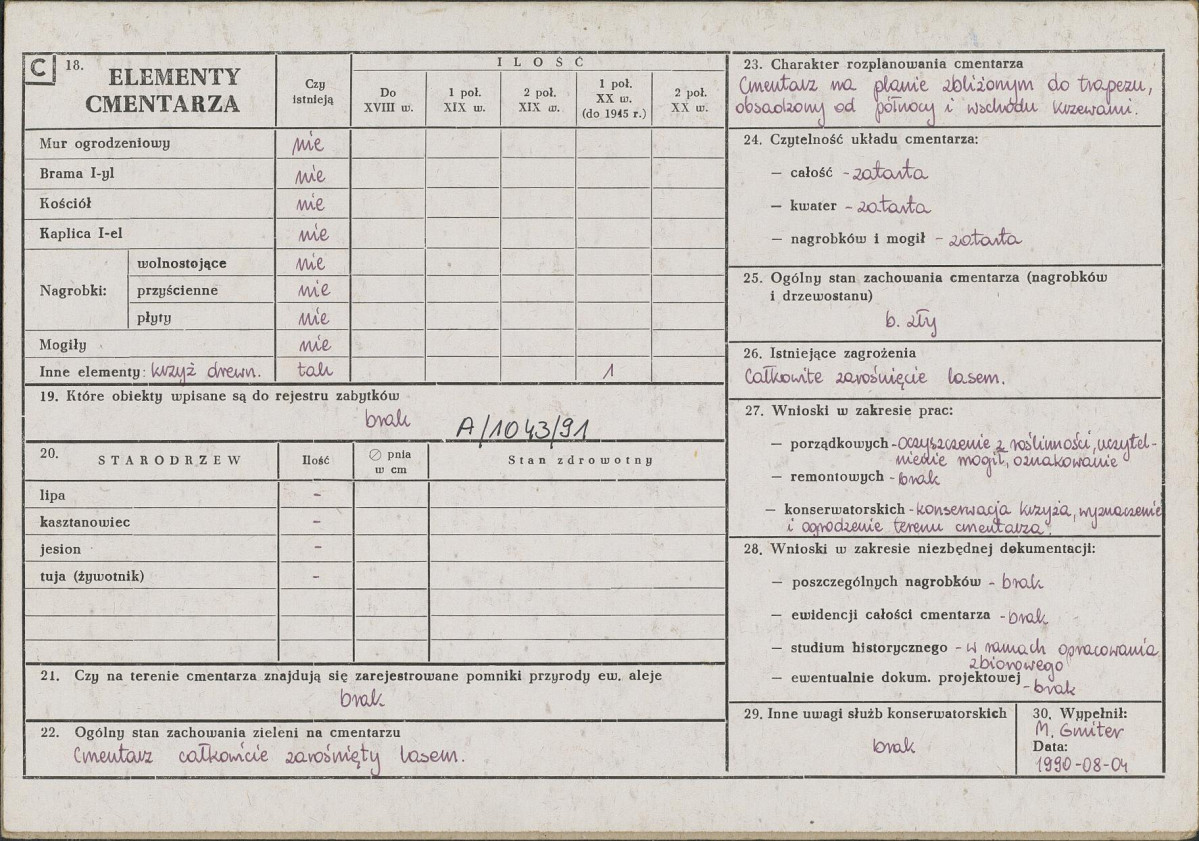 C 18. ELEMENTY CMENTARZA
Czy istnieją
I L O Ś Ć
Do XVIII w.
1 poł. XIX w.
2 poł. XIX w.
1 poł. XX w. (do 1945 r.)
2 poł. XX w.
Mur ogrodzeniowy nie
Brama I-yl nie
Kościół nie
Kaplica I-el nie
Nagrobki: wolnostojące nie
przyścienne nie
płyty nie
Mogiły nie
Inne elementy: krzyż drewn. tak 1
19. Które obiekty wpisane są do rejestru zabytków
brak A/1043/91
20. S T A R O D R Z E W Ilość ∅ pnia w cm Stan zdrowotny
lipa –
kasztanowiec –
jesion –
tuja (żywotnik) –
21. Czy na terenie cmentarza znajdują się zarejestrowane pomniki przyrody ew. aleje
brak
22. Ogólny stan zachowania zieleni na cmentarzu
Cmentarz całkowicie zarośnięty lasem.
23. Charakter rozplanowania cmentarza
Cmentarz na planie zbliżonym do trapezu,
obsadzony od północy i wschodu krzewami.
24. Czytelność układu cmentarza:
— całość - zatarta
— kwater - zatarta
— nagrobków i mogił - zatarta
25. Ogólny stan zachowania cmentarza (nagrobków
i drzewostanu)
b. zły
26. Istniejące zagrożenia
Całkowite zarośnięcie lasem.
27. Wnioski w zakresie prac:
— porządkowych - oczyszczenie z roślinności, uczytel-
nienie mogił, oznakowanie
— remontowych - brak
— konserwatorskich - konserwacja krzyża, wyznaczenie
i ogrodzenie terenu cmentarza.
28. Wnioski w zakresie niezbędnej dokumentacji:
— poszczególnych nagrobków - brak
— ewidencji całości cmentarza - brak
— studium historycznego - w ramach opracowania
zbiorowego
— ewentualnie dokum. projektowej - brak
29. Inne uwagi służb konserwatorskich
brak
30. Wypełnił:
M. Gmiter
Data:
1990-08-04